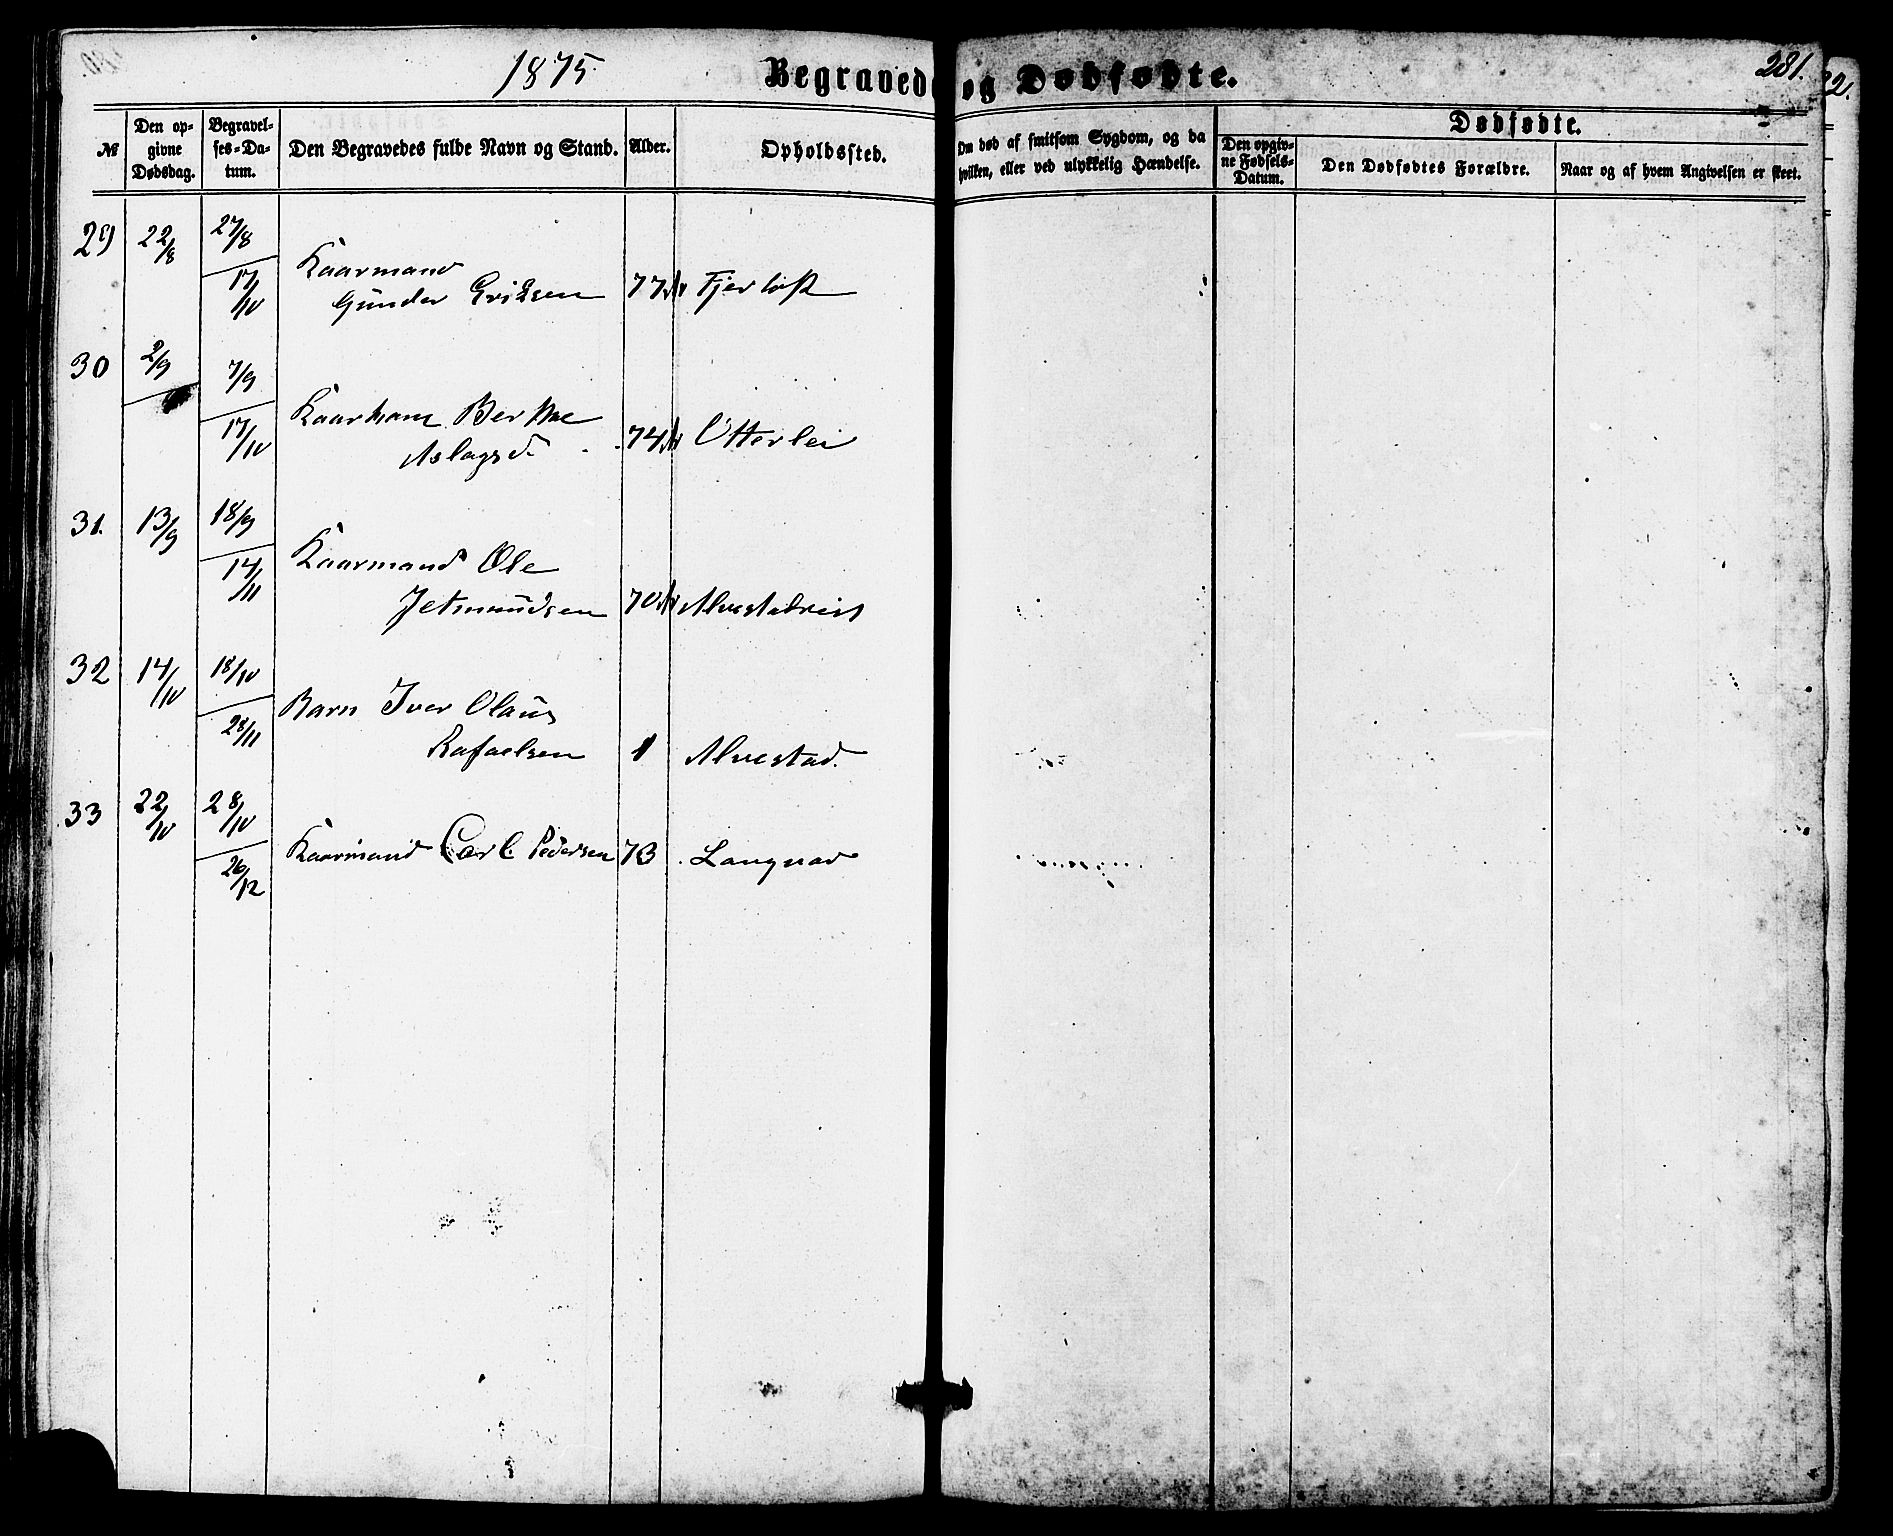 1875.
Begravede og Dødfødte.
281.
32.
№
Den opgivne Dødsdag.
Begravelses-Datum.
Den Begravedes fulde Navn og Stand.
Alder.
Opholdssted.
Om død af smitsom Sygdom, og da hvilken, eller ved ulykkelig Hændelse.
Dødfødte.
Den opgivne Fødsels-Datum.
Den Dødfødtes Forældre.
Naar og af hvem Angivelsen er skeet.
29 22/8 27/8
17/10 Kaarmand
Gunder Eriksen 77 Fjertoft
30 2/9 7/9
17/10 Kaarkone Berthe
Aslagsd. 74 Otterlei
31. 13/9 18/9
14/11 Kaarmand Ole
Jetmundsen 70 Alvestadreit
32 14/10 18/10
28/11 Barn Iver Olaus
Rafaelsen 1 Alvestad.
33 22/10 28/10
26/12 Kaarmand Carl Pedersen 73 Langvad